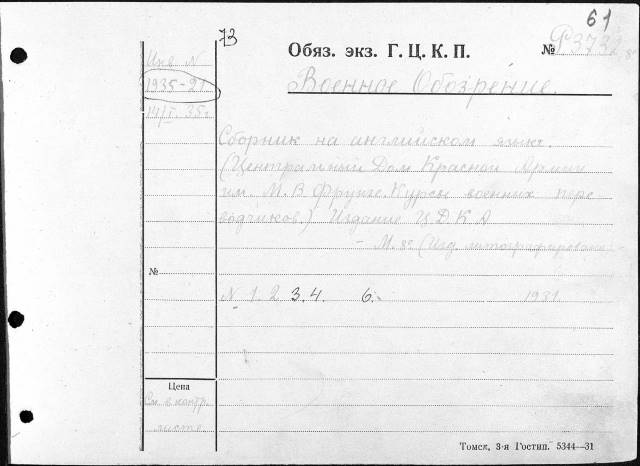 61
73
Обяз. экз. Г. Ц. К. П.
№ Р3732
Инв. N
1935-21
14/I. 35г.
Военное Обозрение.
Сборник на английском языке.
(Центральный Дом Красной Армии
им. М. В Фрунзе. Курсы военных пере
водчиков) Издание Ц Д К А
- М. 8° (Изд. литографирован
№
N 1. 2. 3. 4. 6. 1931.
Цена
См. в контр.
листе
Томск, 3-я Гостип. 5344—31